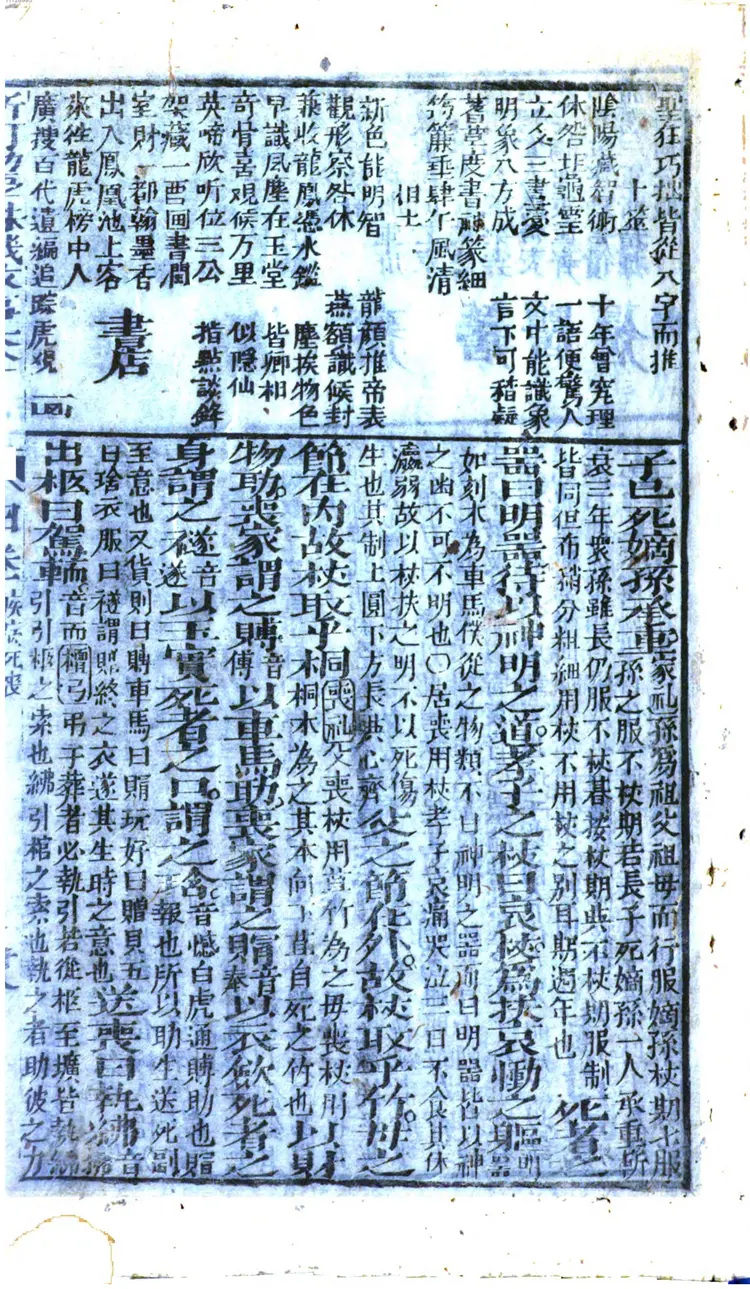 聖狂巧拙皆從八字而推
卜筮
陰陽藏智術 十年曾究理
休咎在龜筮 一語便驚人
立爻三畫變 文中能識象
明象八方成 言下可稽疑
蓍草度書神篆細
筠簾垂肆午風清
相士
新色能明智 龍顏推帝表
觀形察咎休 燕頷識候封
兼收龍鳳憑水鑑 塵埃物色
早識風塵在玉堂 皆卿相
奇骨喜观候万里 似隱仙
英啼欣听位三公 指點談鋒
架藏二酉画書潤
室財一都翰墨香
出入鳳凰池上客 書店
來往龍虎榜中人
廣搜百代遺編追踪虎观
子已死嫡孫承重家礼孫爲祖父祖母而行服嫡孫杖期衆
孫之服不杖期若長子死嫡孫一人承重斬
衰三年衆孫雖長仍服不杖朞按杖期與不杖期服制
皆同但布稍分粗細用杖不用杖之別耳期週年也 死者之
器曰明器待以神明之道孝子之杖曰哀杖爲扶哀慟之軀明器
如刻木為車馬僕從之物類不曰神明之器而曰明器皆以神
之幽不可不明也○居喪用杖孝子哀痛哭泣三日不食其体
羸弱故以杖扶之明不以死傷
生也其制上圓下方長與心齊 父之節在外故杖取乎竹母之
節在内故杖取乎桐喪礼父喪杖用苴竹為之母喪杖用
桐木為之其本向下苴自死之竹也 以財
物助喪家謂之賻音傅以車馬助喪家謂之賵音奉以衣歛死者之
身謂之襚音遂以玉實死者之口謂之含音憾白虎通賻助也賵
報也所以助生送死副
至意也又貨則曰賻車馬曰賵玩好曰贈貝玉
曰琀衣服曰襚謂贈終之衣遂其生時之意也 送喪曰執紼音拂
出柩曰駕輀音而檀弓弔于葬者必執引若從柩至壙皆執紼
引引柩之索也紼引棺之索也執之者助彼之力